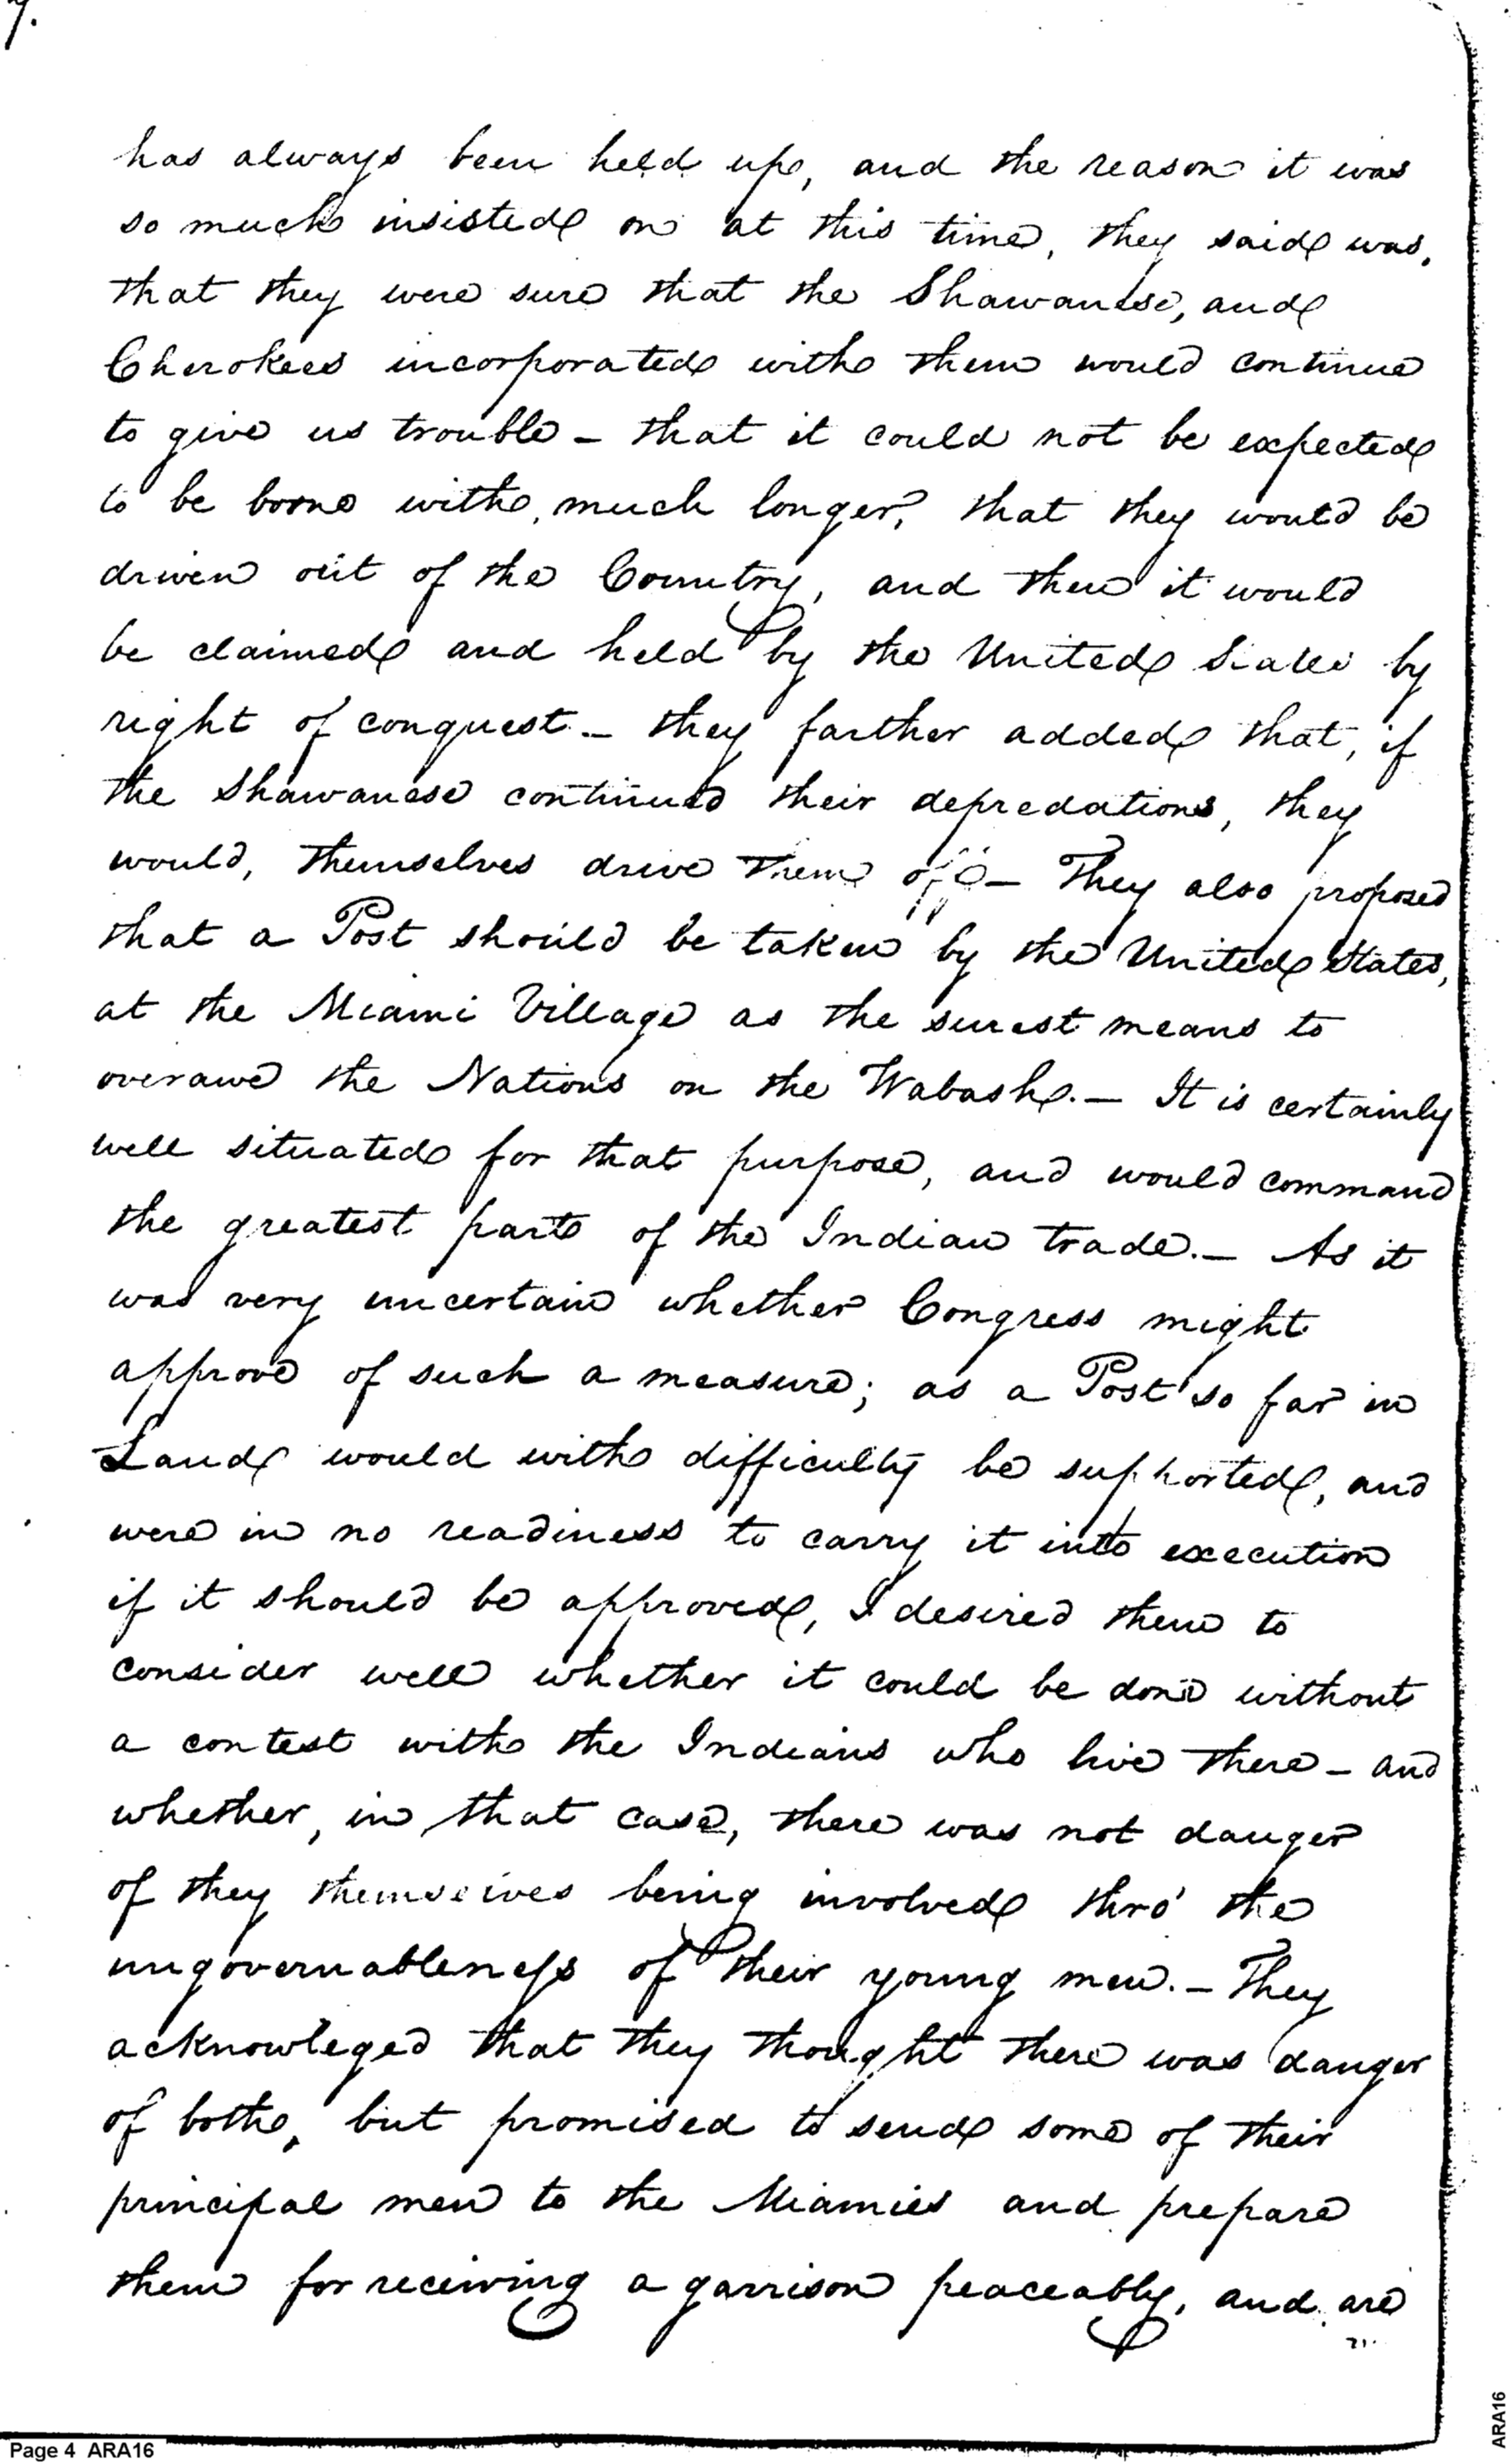 7.
has always been held up, and the reason it was
so much insisted on at this time, they said was,
that they were sure that the Shawanese, and
Cherokees incorporated with them would continue
to give us trouble – that it could not be expected
to be borne with, much longer, that they would be
driven out of the Country, and then it would
be claimed and held by the United States by
right of conquest – they farther added that, if
the Shawanese continued their depredations, they
would, themselves drive them off – They also proposed
that a Post should be taken by the United States,
at the Miami Village as the surest means to
overawe the Nations on the Wabash. – It is certainly
well situated for that purpose, and would command
the greatest part of the Indian trade. – As it
was very uncertain whether Congress might
approve of such a measure; as a Post so far in
Land would with difficulty be supported, and
were in no readiness to carry it into execution
if it should be approved, I desired them to
consider well whether it could be done without
a contest with the Indians who live there – and
whether, in that case, there was not danger
of they themselves being involved thro' the
ungovernableness of their young men. – They
acknowleged that they thought there was danger
of both, but promised to send some of their
principal men to the Miamies and prepare
them for receiving a garrison peaceably, and are
Page 4 ARA16
ARA16